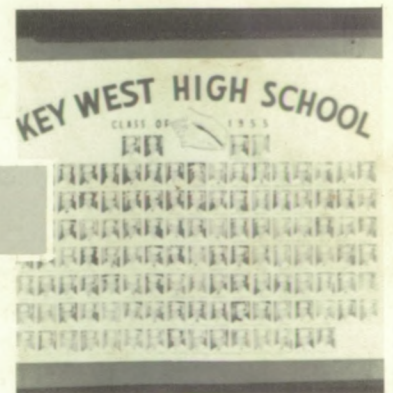 KEY WEST HIGH SCHOOL
CLASS OF 1955